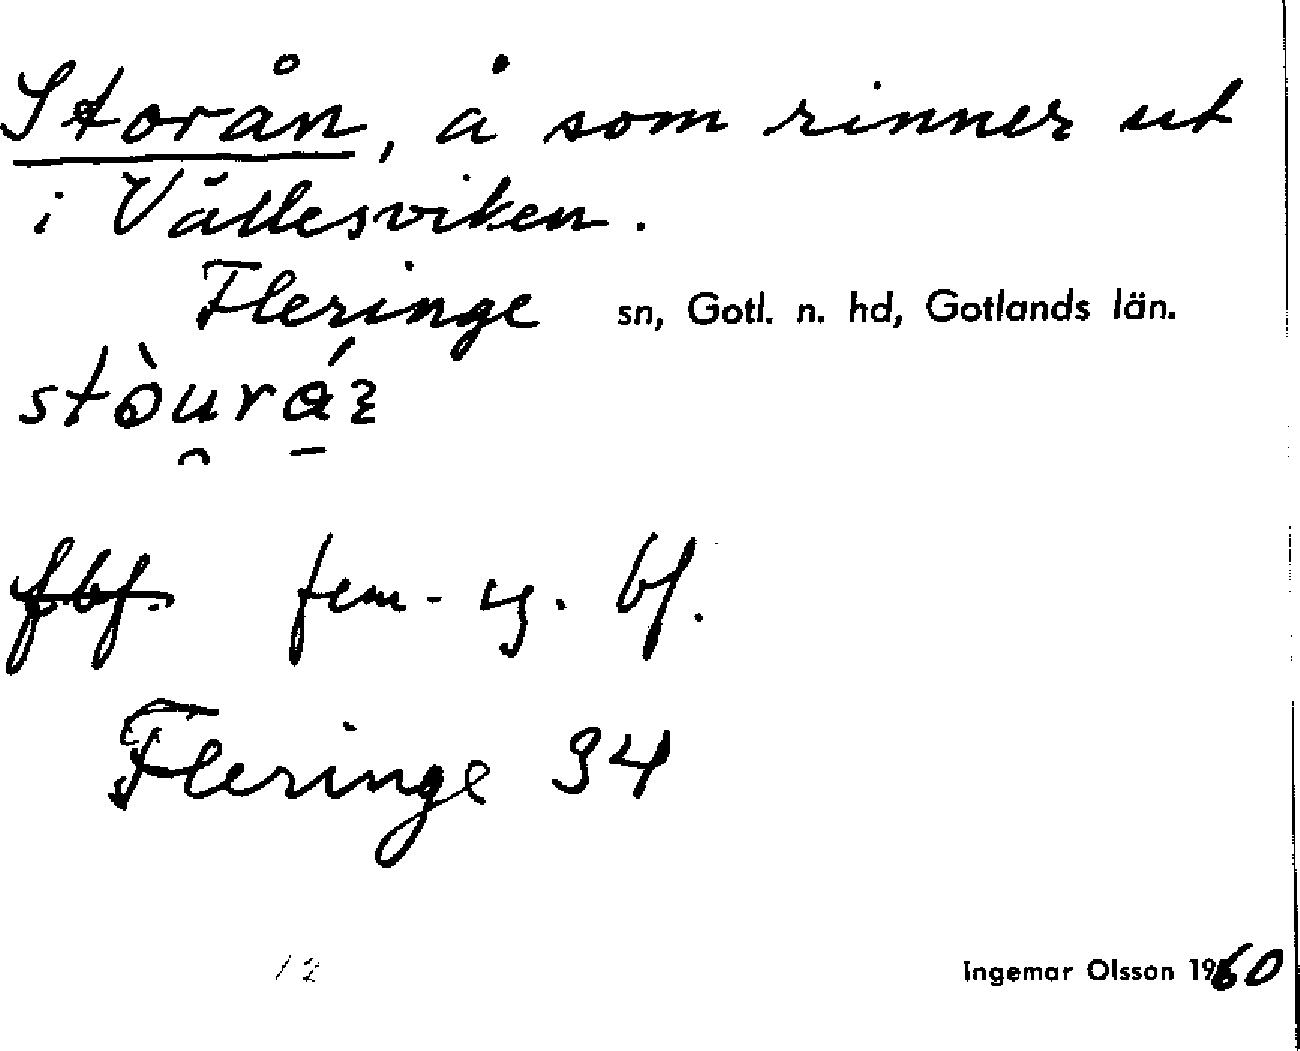 Storån, å som rinner ut
i Vällesviken.
Fleringe sn, Gotl. n. hd, Gotlands län.
fbf. fem. sg. bf.
Fleringe 34
12
Ingemar Olsson 1960